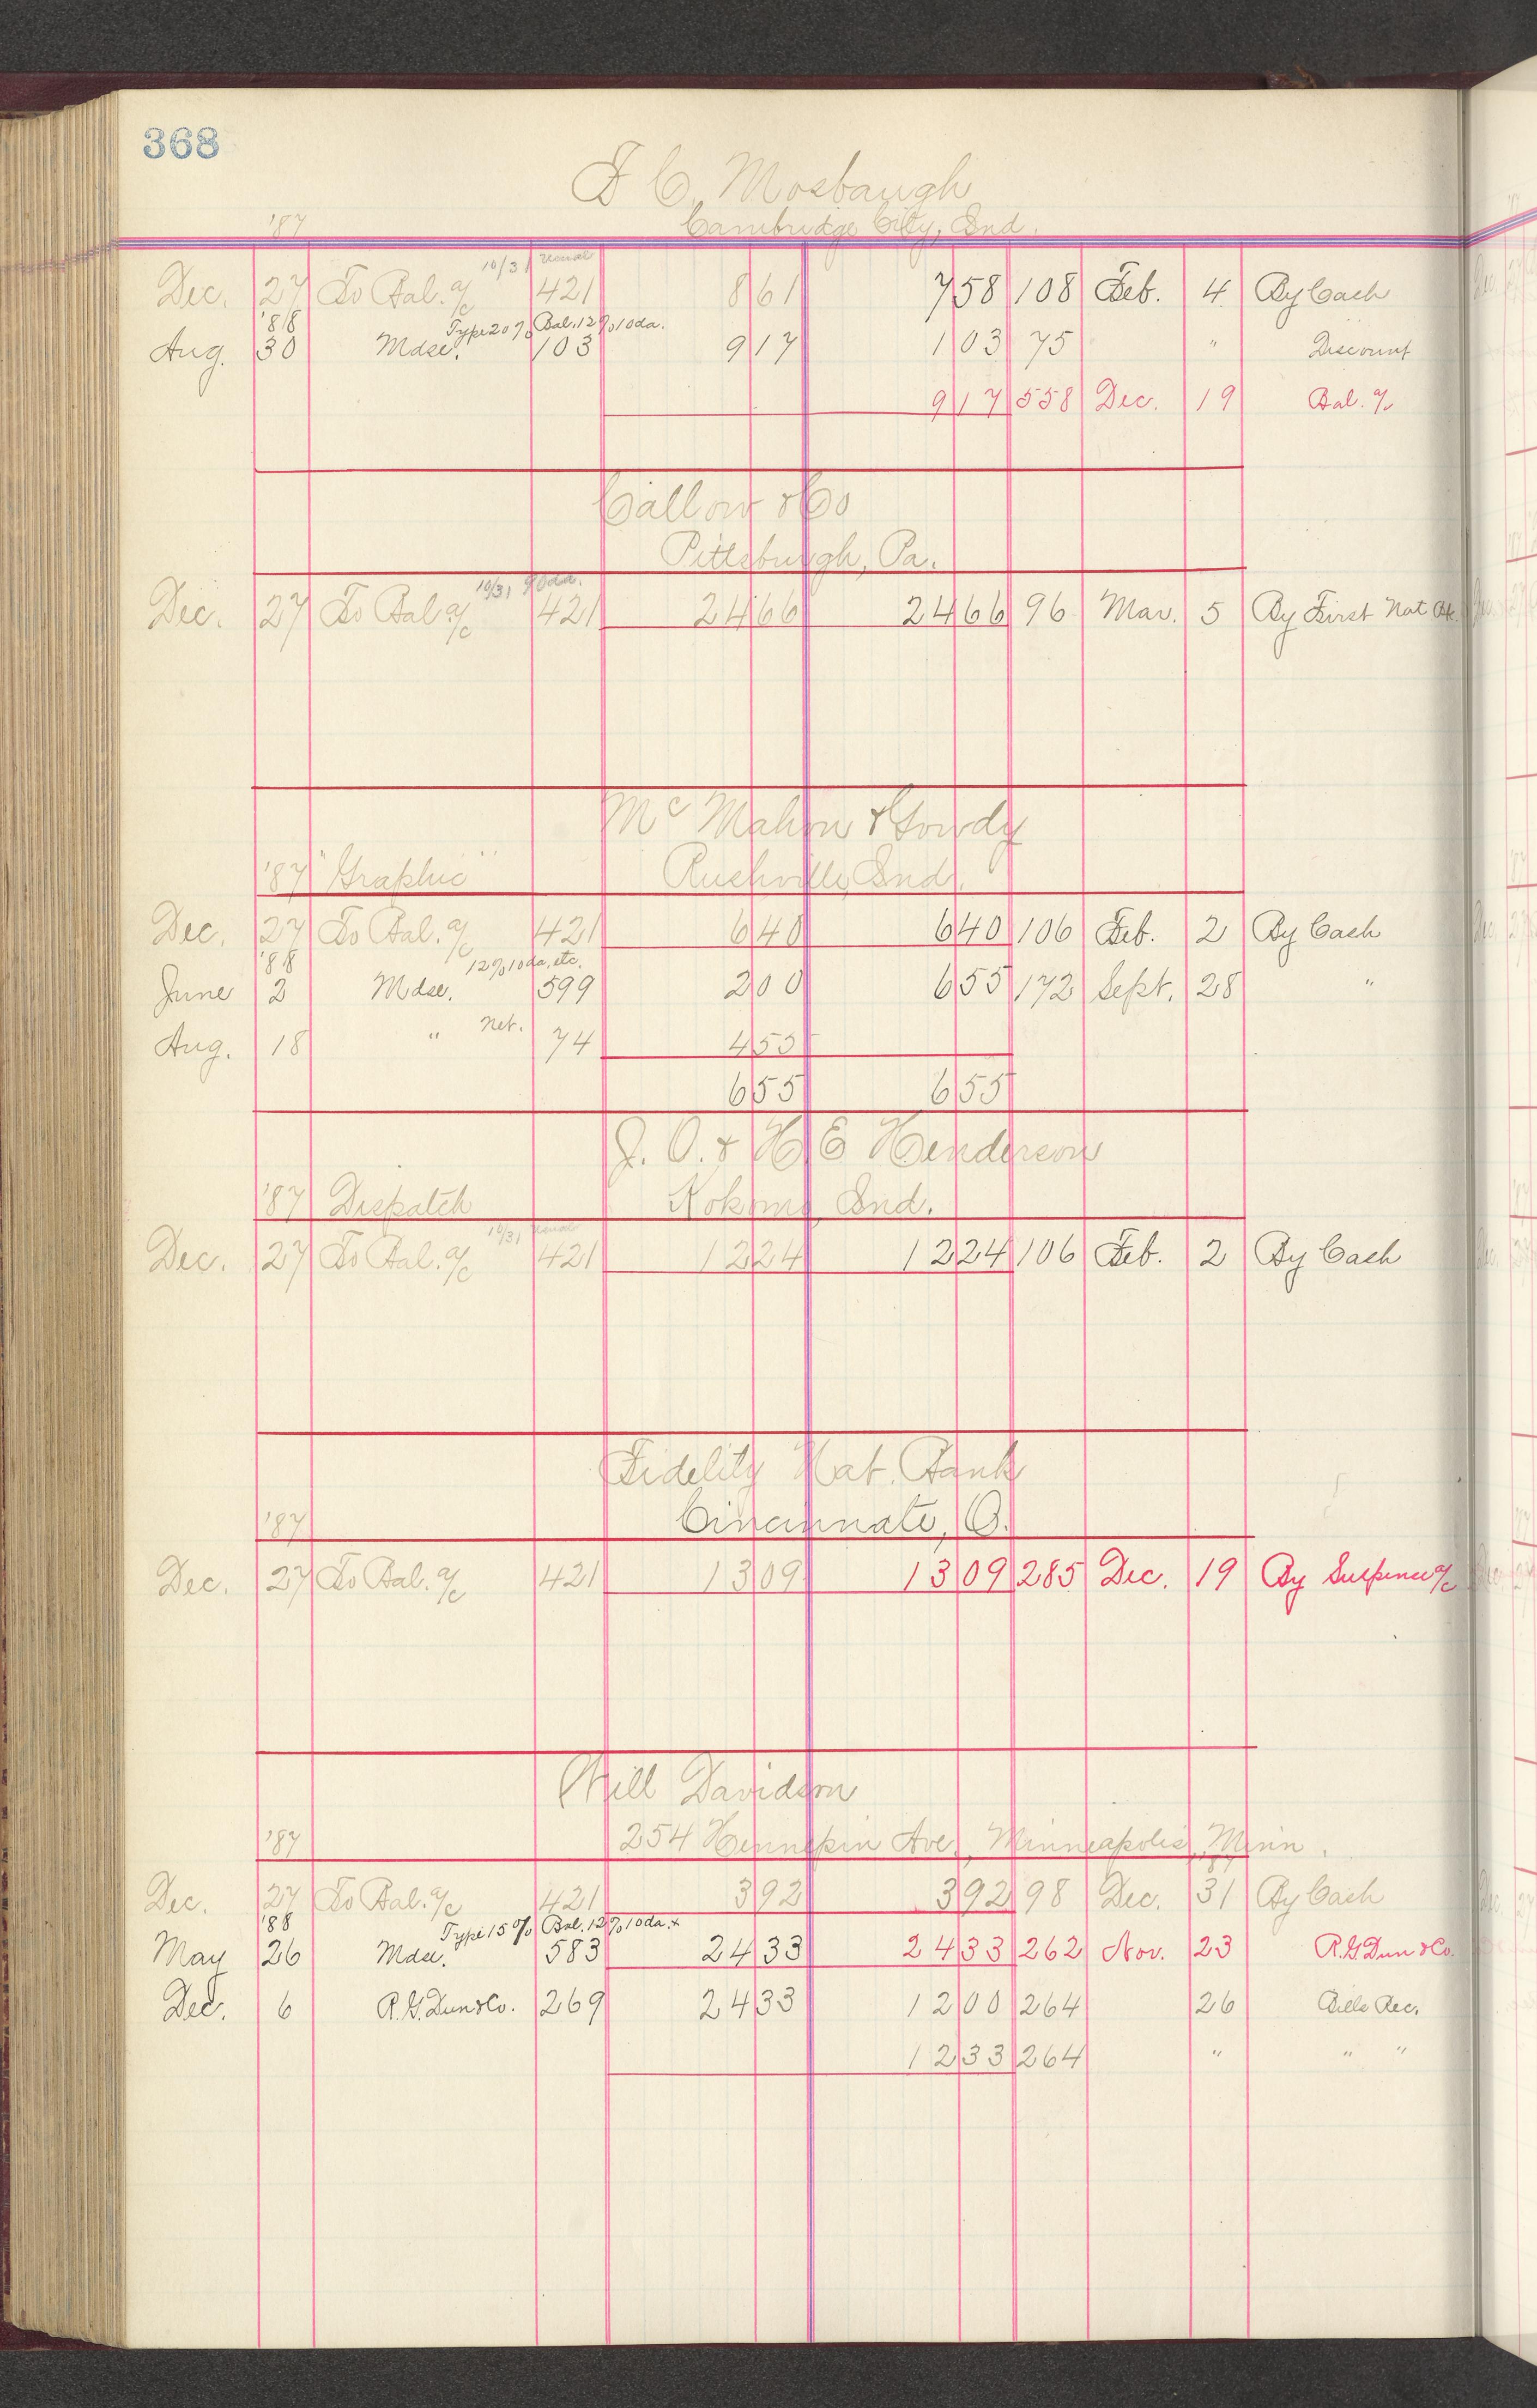 368
F C Mosbaugh
'87 Cambridge City, Ind.
10/31 usual
Dec. 27 To Bal. a/c 421 8 61 7 58 108 Feb. 4 By Cash
'88 Type 20% Bal. 12% 10 da.
Aug. 30 Mdse. 103 9 17 1 03 75 " Discount
9 17 558 Dec. 19 Bal. a/c
Callow & Co
Pittsburgh, Pa.
10/31 90 da.
Dec. 27 To Bal a/c 421 24 66 24 66 96 Mar. 5 By First Nat Bk.
Mc Mahon & Gowdy
'87 "Graphic" Rushville, Ind.
Dec. 27 To Bal. a/c 421 6 40 6 40 106 Feb. 2 By Cash
'88 12% 10 da, etc.
June 2 Mdse. 599 2 00 6 55 172 Sept. 28 "
Aug. 18 " net. 74 4 55
6 55 6 55
J. O. & H E Henderson
'87 Dispatch Kokomo, Ind.
10/31 usual
Dec. 27 To Bal. a/c 421 12 24 12 24 106 Feb. 2 By Cash
Fidelity Nat. Bank
'87 Cincinnati, O.
Dec. 27 To Bal. a/c 421 13 09 13 09 285 Dec. 19 By Suspense a/c
Will Davidson
'87 254 Hennepin Ave., Minneapolis, Minn.
'87
Dec. 27 To Bal. a/c 421 3 92 3 92 98 Dec. 31 By Cash
'88 Type 15% Bal. 12% 10 da. +
May 26 Mdse. 583 24 33 24 33 262 Nov. 23 R. G. Dun & Co.
Dec. 6 R. G. Dun & Co. 269 24 33 12 00 264 26 Bills Rec.
12 33 264 " " "